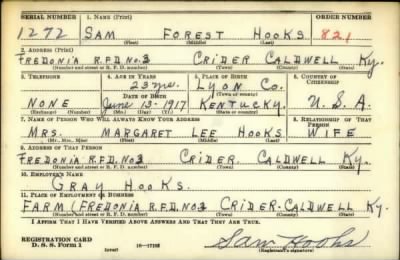 SERIAL NUMBER 1. NAME (Print) ORDER NUMBER
1272 SAM FOREST HOOKS 821
(First) (Middle) (Last)
2. ADDRESS (Print)
FREDONIA R.F.D. No 3 CRIDER CALDWELL Ky.
(Number and street or R. F. D. number) (Town) (County) (State)
3. TELEPHONE 4. AGE IN YEARS 5. PLACE OF BIRTH 6. COUNTRY OF CITIZENSHIP
23 yrs. LYON Co.
DATE OF BIRTH (Town or county)
NONE June 13-1917 KENTUCKY. U.S.A.
(Exchange) (Number) (Mo.) (Day) (Yr.) (State or country)
7. NAME OF PERSON WHO WILL ALWAYS KNOW YOUR ADDRESS 8. RELATIONSHIP OF THAT PERSON
MRS. MARGARET LEE HOOKS WIFE
(Mr., Mrs., Miss) (First) (Middle) (Last)
9. ADDRESS OF THAT PERSON
FREDONIA R.F.D. No3 CRIDER. CALDWELL Ky.
(Number and street or R. F. D. number) (Town) (County) (State)
10. EMPLOYER'S NAME
GRAY HOOKS.
11. PLACE OF EMPLOYMENT OR BUSINESS
FARM (FREDONIA R.F.D. No3 CRIDER-CALDWELL Ky.
(Number and street or R. F. D. number) (Town) (County) (State)
I AFFIRM THAT I HAVE VERIFIED ABOVE ANSWERS AND THAT THEY ARE TRUE.
REGISTRATION CARD
D. S. S. Form 1 (over) 16-17105 Sam Hooks
(Registrant's signature)